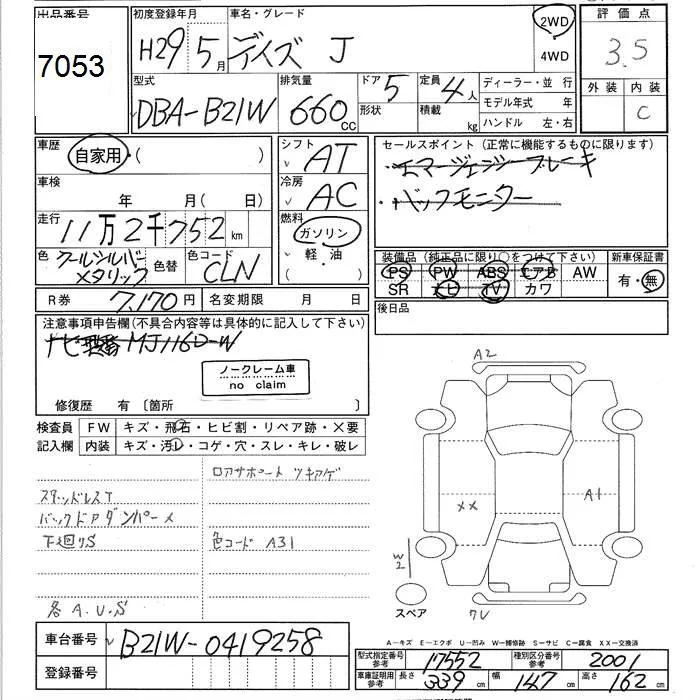 出品番号
7053
初度登録年月
H29 5月
車名・グレード
デイズ J
2WD
4WD
評価点
3.5
外装 内装
C
型式
DBA-B21W
排気量
660 cc
ドア 5
形状
定員 4人
積載 kg
ディーラー・並行
モデル年式 年
ハンドル 左・右
車歴
自家用・( )
シフト
AT
セールスポイント (正常に機能するものに限ります)
エマージェンシーブレーキ
バックモニター
車検
年 月( 日)
冷房
AC
走行
11万2千752 km
燃料
ガソリン
軽・油
( )
色 クールシルバーメタリック
色替
色コード
CLN
装備品 (純正品に限り○をつけて下さい)
PS PW ABS エアB AW
SR ナビ TV カワ
新車保証書
有・無
R券 7,170円
名変期限 月 日
後日品
注意事項申告欄(不具合内容等は具体的に記入して下さい)
MJ116D-W
ノークレーム車
no claim
修復歴 有〔箇所 〕
検査員記入欄
FW キズ・飛石・ヒビ割・リペア跡・X要
内装 キズ・汚レ・コゲ・穴・スレ・キレ・破レ
ロアサポート ツキアゲ
スタッドレスT
バックドアダンパー×
下廻りS
色コード A31
各A.U.S
A2
XX
A1
W2
スペア
7U
車台番号 B21W-0419258
登録番号
A―キズ E―エクボ U―凹み W―補修跡 S―サビ C―腐食 XX―交換済
型式指定番号 参考 17552
種別区分番号 参考 2001
車庫証明用 参考 長さ 339 cm 幅 147 cm 高さ 162 cm